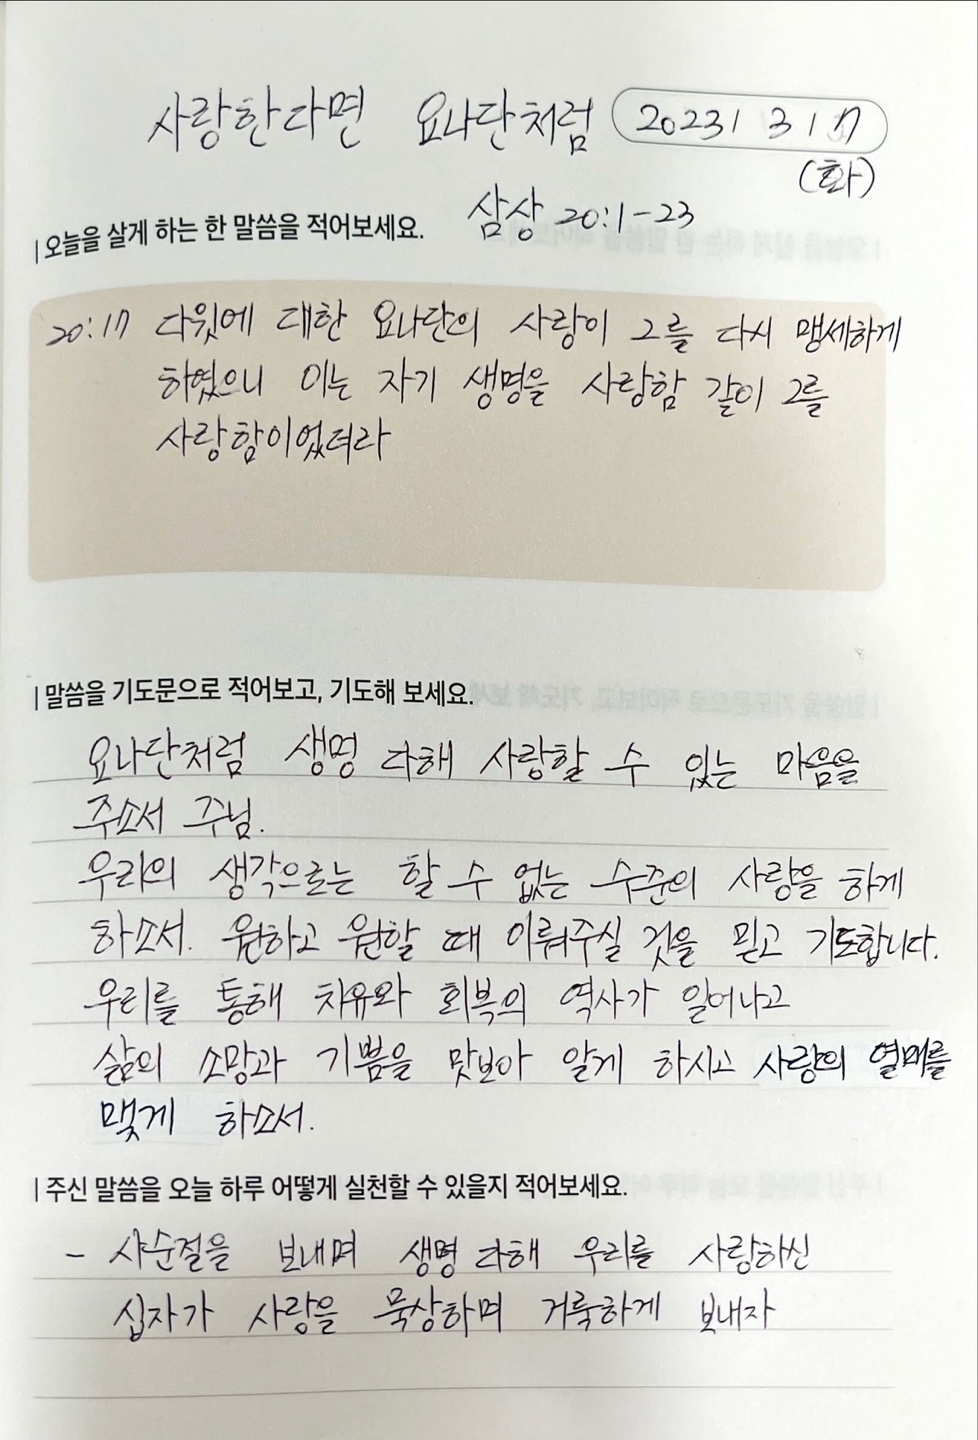 사랑한다면 요나단처럼 2023 / 3 / 7
(화)
삼상 20:1-23
| 오늘을 살게 하는 한 말씀을 적어보세요.
20:17 다윗에 대한 요나단의 사랑이 그를 다시 맹세하게
하였으니 이는 자기 생명을 사랑함 같이 그를
사랑함이었더라
| 말씀을 기도문으로 적어보고, 기도해 보세요.
요나단처럼 생명 다해 사랑할 수 있는 마음을
주소서 주님.
우리의 생각으로는 할 수 없는 수준의 사랑을 하게
하소서. 원하고 원할 때 이뤄주실 것을 믿고 기도합니다.
우리를 통해 치유와 회복의 역사가 일어나고
삶의 소망과 기쁨을 맛보아 알게 하시고 사랑의 열매를
맺게 하소서.
| 주신 말씀을 오늘 하루 어떻게 실천할 수 있을지 적어보세요.
- 사순절을 보내며 생명 다해 우리를 사랑하신
십자가 사랑을 묵상하며 거룩하게 보내자